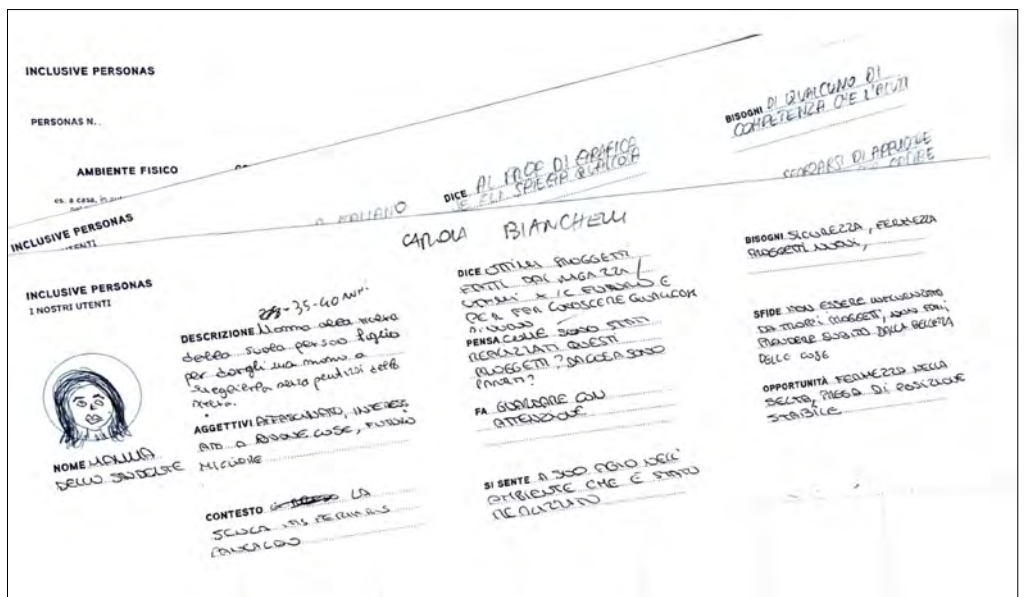 INCLUSIVE PERSONAS
PERSONAS N.
AMBIENTE FISICO
es. a casa, in
BISOGNI DI QUALCUNO DI
COMPETENZA CHE L'AIUTI
DICE AL PROF DI GRAFICA
SE GLI SPIEGA QUALCOSA
INCLUSIVE PERSONAS
UTENTI
CAROLA BIANCHELLI
INCLUSIVE PERSONAS
I NOSTRI UTENTI
NOME MAMMA
DELLO STUDENTE
35-40 anni
DESCRIZIONE Mamma alla ricerca
della scuola per suo figlio
per dargli una mano a
scelta.
AGGETTIVI AFFASCINATO, INTERESS
ATO A NUOVE COSE, FUTURO
MIGLIORE
CONTESTO LA
SCUOLA
DICE OTTIMI PROGETTI
FATTI DAI RAGAZZI,
UTILI X IL FUTURO E
PER FAR CONOSCERE QUALCOSA
DI NUOVO
PENSA COME SONO STATI
REALIZZATI QUESTI
PROGETTI? DA COSA SONO
PARTITI?
FA GUARDARE CON
ATTENZIONE
SI SENTE A SUO AGIO NELL'
AMBIENTE CHE È STATO
REALIZZATO
BISOGNI SICUREZZA, FERMEZZA
PROGETTI NUOVI,
SFIDE NON ESSERE INFLUENZATO
DA TROPPI PROGETTI, NON FARSI
PRENDERE SUBITO DALLA BELLEZZA
DELLE COSE
OPPORTUNITÀ FERMEZZA NELLA
SCELTA, PRESA DI POSIZIONE
STABILE